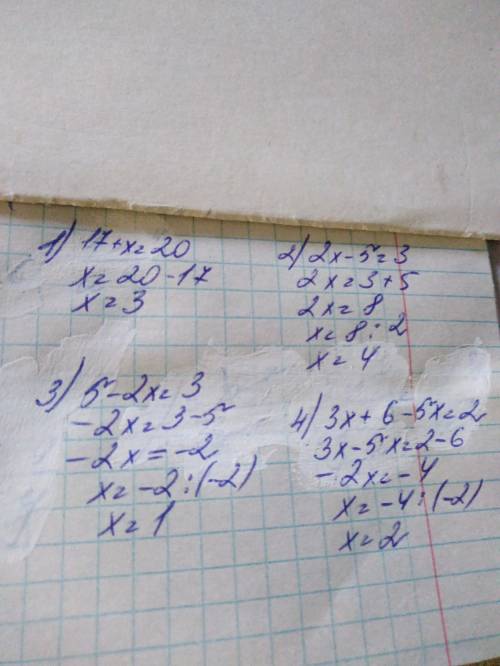 1) 17+x=20
x=20-17
x=3
2) 2x-5=3
2x=3+5
2x=8
x=8:2
x=4
3) 5-2x=3
-2x=3-5
-2x=-2
x=-2:(-2)
x=1
4) 3x+6-5x=2
3x-5x=2-6
-2x=-4
x=-4:(-2)
x=2